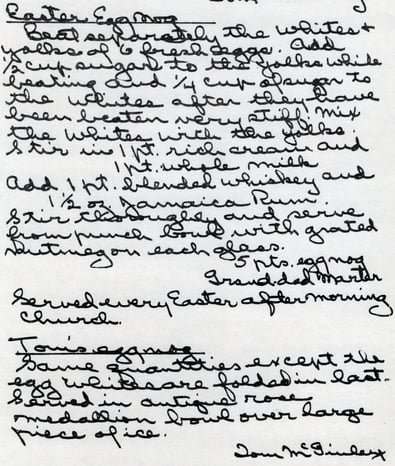 Easter Eggnog
Beat separately the whites +
yolks of 6 fresh eggs. Add
1/2 cup sugar to the yolks while
beating and 1/4 cup of sugar to
the whites after they have
been beaten very stiff. Mix
the whites with the yolks.
Stir in 1 pt. rich cream and
1 pt. whole milk
Add 1 pt. blended whiskey and
1 1/2 oz. Jamaica Rum.
Stir thoroughly and serve
from punch bowl with grated
nutmeg on each glass.
5 pts. eggnog
Granddad Marter
Served every Easter after morning
church.
Tom's eggnog
Same quantities except the
egg whites are folded in last.
Served in antique rose
medallion bowl over large
piece of ice.
Tom